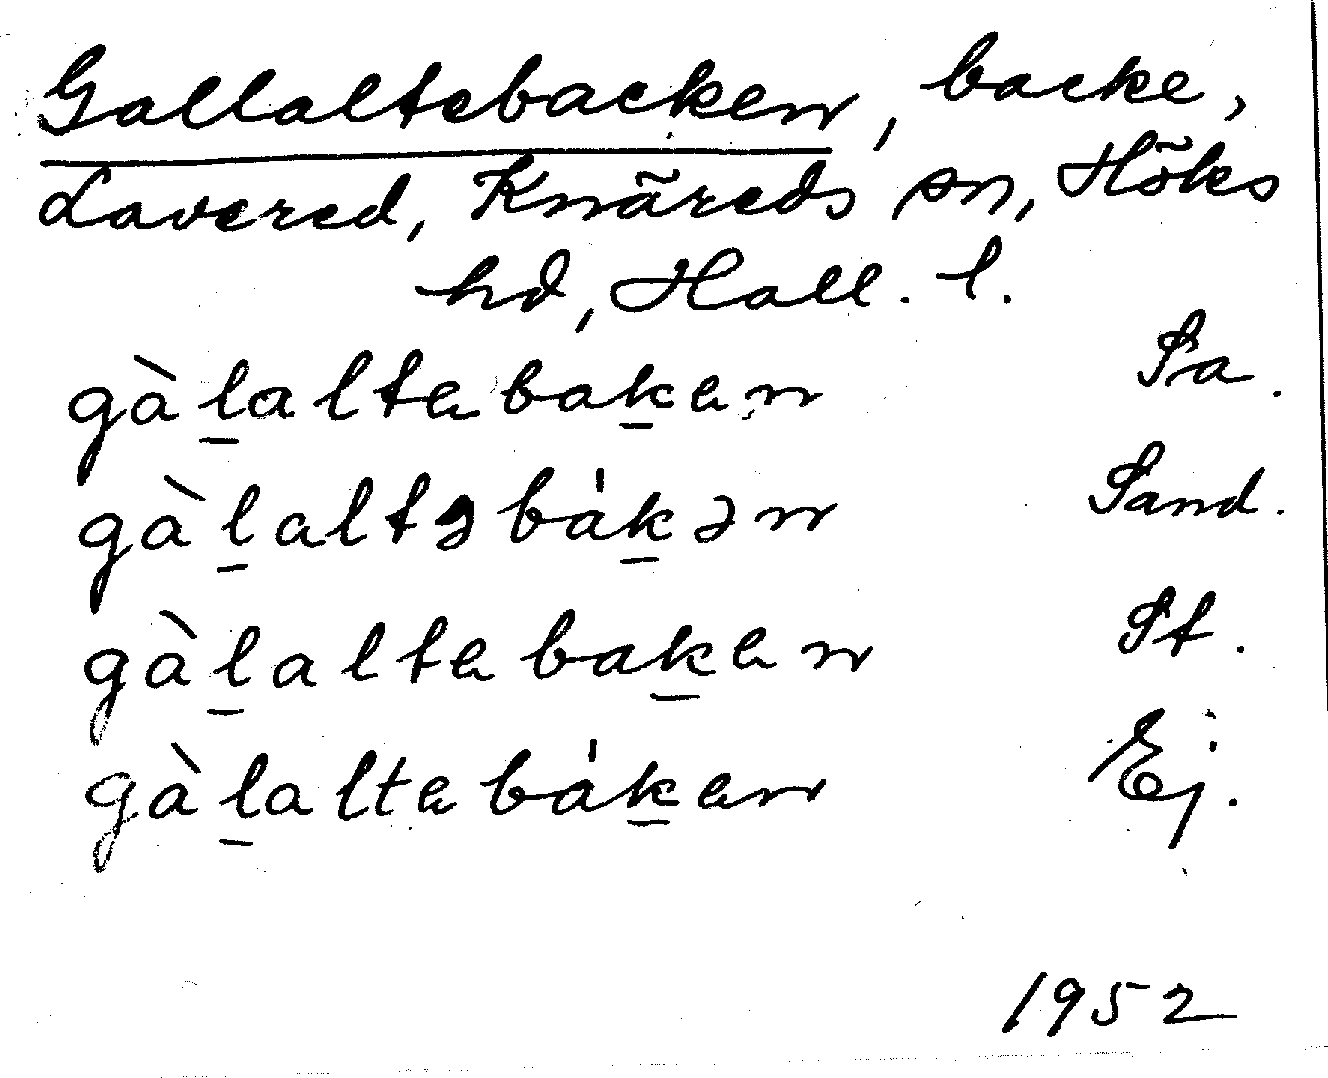 Gallaltebacken, backe,
Lavered, Knäreds sn, Höks
hd, Hall. l.
gàl̲altebak̲en Pa.
gàl̲altəbák̲ən Sand.
gàl̲altebak̲en St.
gàl̲altebák̲en Ej.
1952